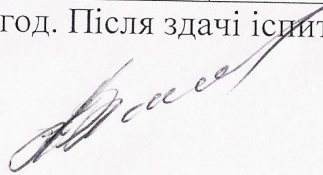 год. Після здачі іспит